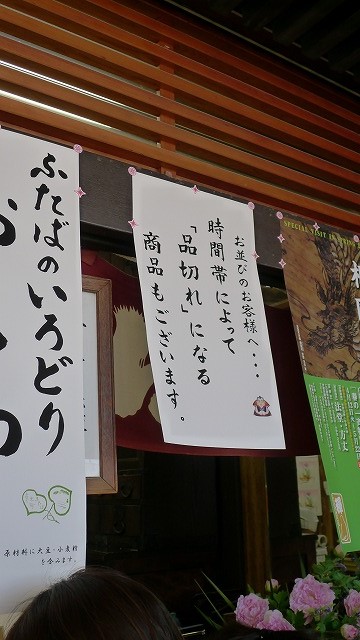 ふたばのいろどり
原材料に大豆・小麦粉
を含みます。
お並びのお客様へ・・・
時間帯によって
「品切れ」になる
商品もございます。
SPECIAL VISIT IN
法堂
方丈